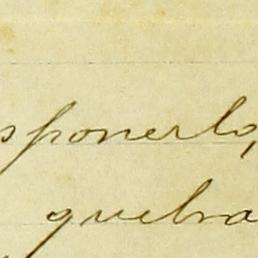 sponerlo,
quebra